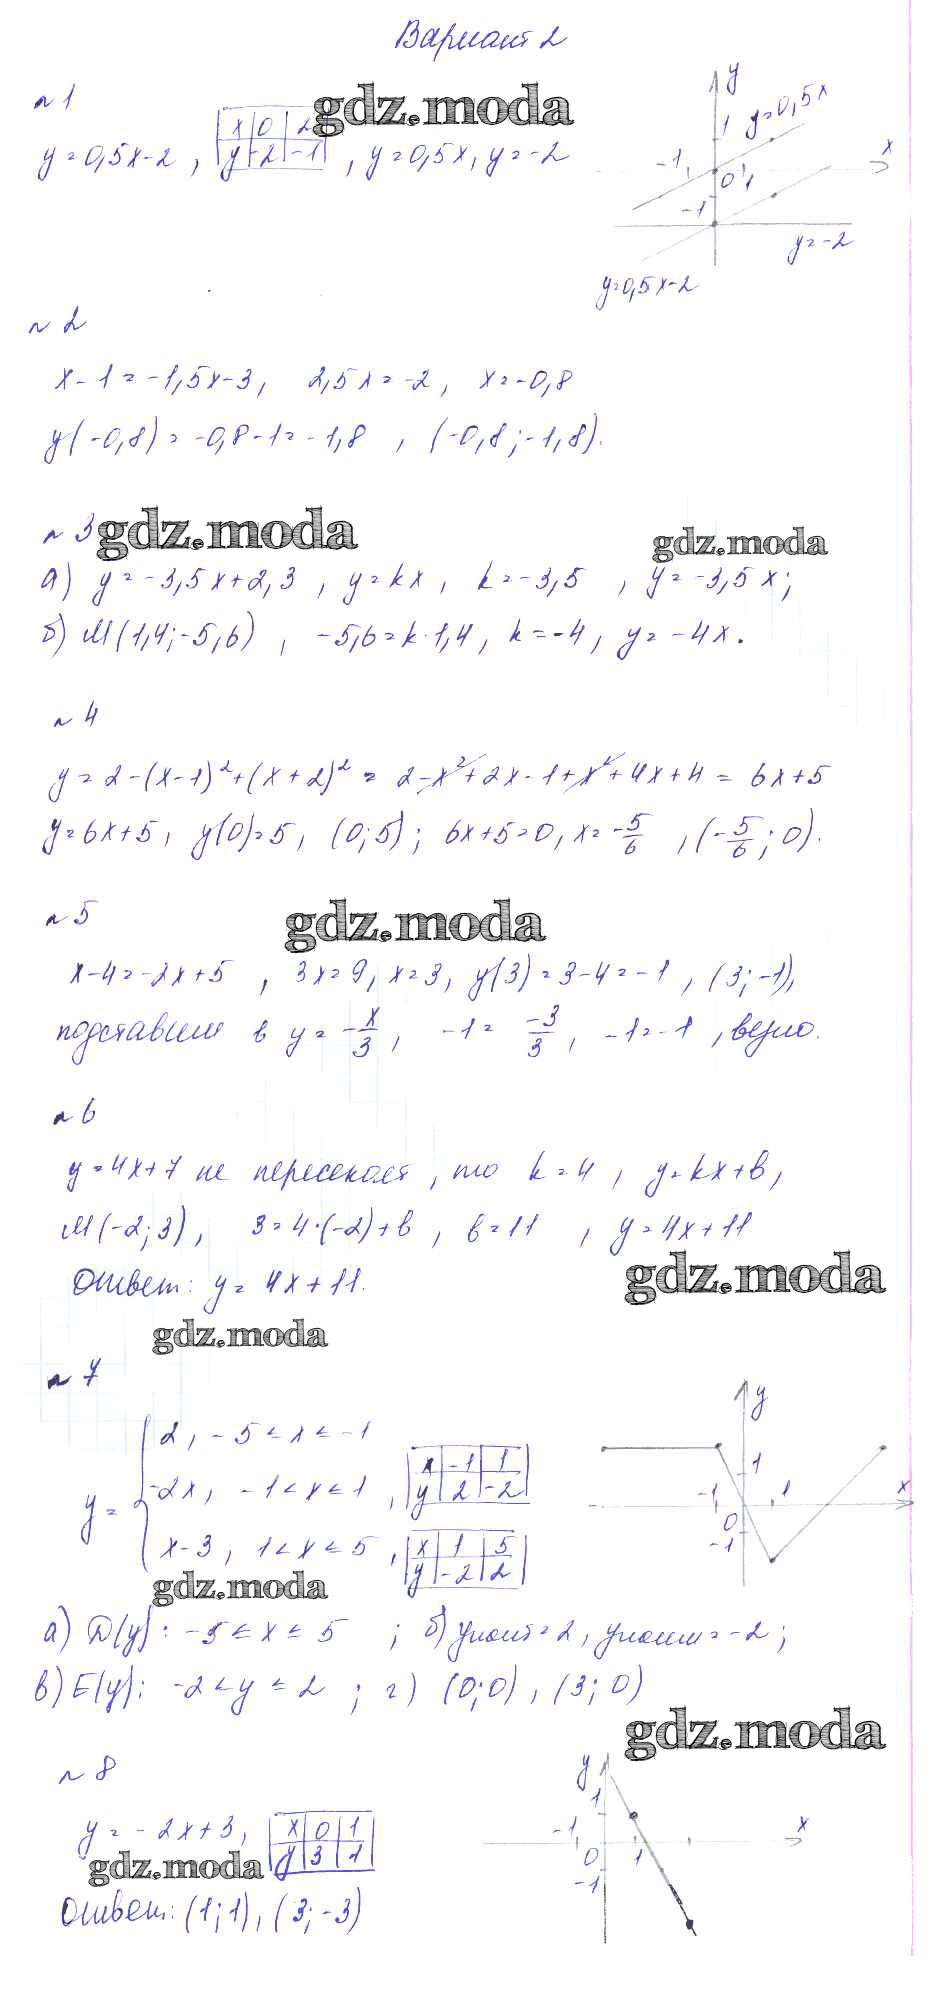 Вариант 2
№1
gdz.moda
x 0 2
y -2 -1
y=0,5x-2, , y=0,5x, y=-2
y
y=0,5x
1
x
-1
0 1
-1
y=-2
y=0,5x-2
№2
x-1=-1,5x-3, 2,5x=-2, x=-0,8
y(-0,8)=-0,8-1=-1,8, (-0,8;-1,8).
№3
gdz.moda
gdz.moda
а) y=-3,5x+2,3, y=kx, k=-3,5, y=-3,5x;
б) M(1,4;-5,6), -5,6=k·1,4, k=-4, y=-4x.
№4
y=2-(x-1)²+(x+2)²=2-x²+2x-1+x²+4x+4=6x+5
y=6x+5, y(0)=5, (0;5); 6x+5=0, x=-5/6, (-5/6;0).
№5
gdz.moda
x-4=-2x+5, 3x=9, x=3, y(3)=3-4=-1, (3;-1),
подставим в y=-x/3, -1=-3/3, -1=-1, верно.
№6
y=4x+7 не пересекает, то k=4, y=kx+b,
M(-2;3), 3=4·(-2)+b, b=11, y=4x+11
Ответ: y=4x+11.
gdz.moda
gdz.moda
№7
y= { 2, -5≤x≤-1
-2x, -1<x≤1,
x -1 1
y 2 -2
x-3, 1<x≤5,
x 1 5
y -2 2
y
1
-1 1 x
0
-1
gdz.moda
а) D(y): -5≤x≤5; б) yнаиб=2, yнаим=-2;
в) E(y): -2≤y≤2; г) (0;0), (3;0)
gdz.moda
№8
y=-2x+3,
x 0 1
y 3 1
y
1
-1 x
0 1
-1
gdz.moda
Ответ: (1;1), (3;-3)